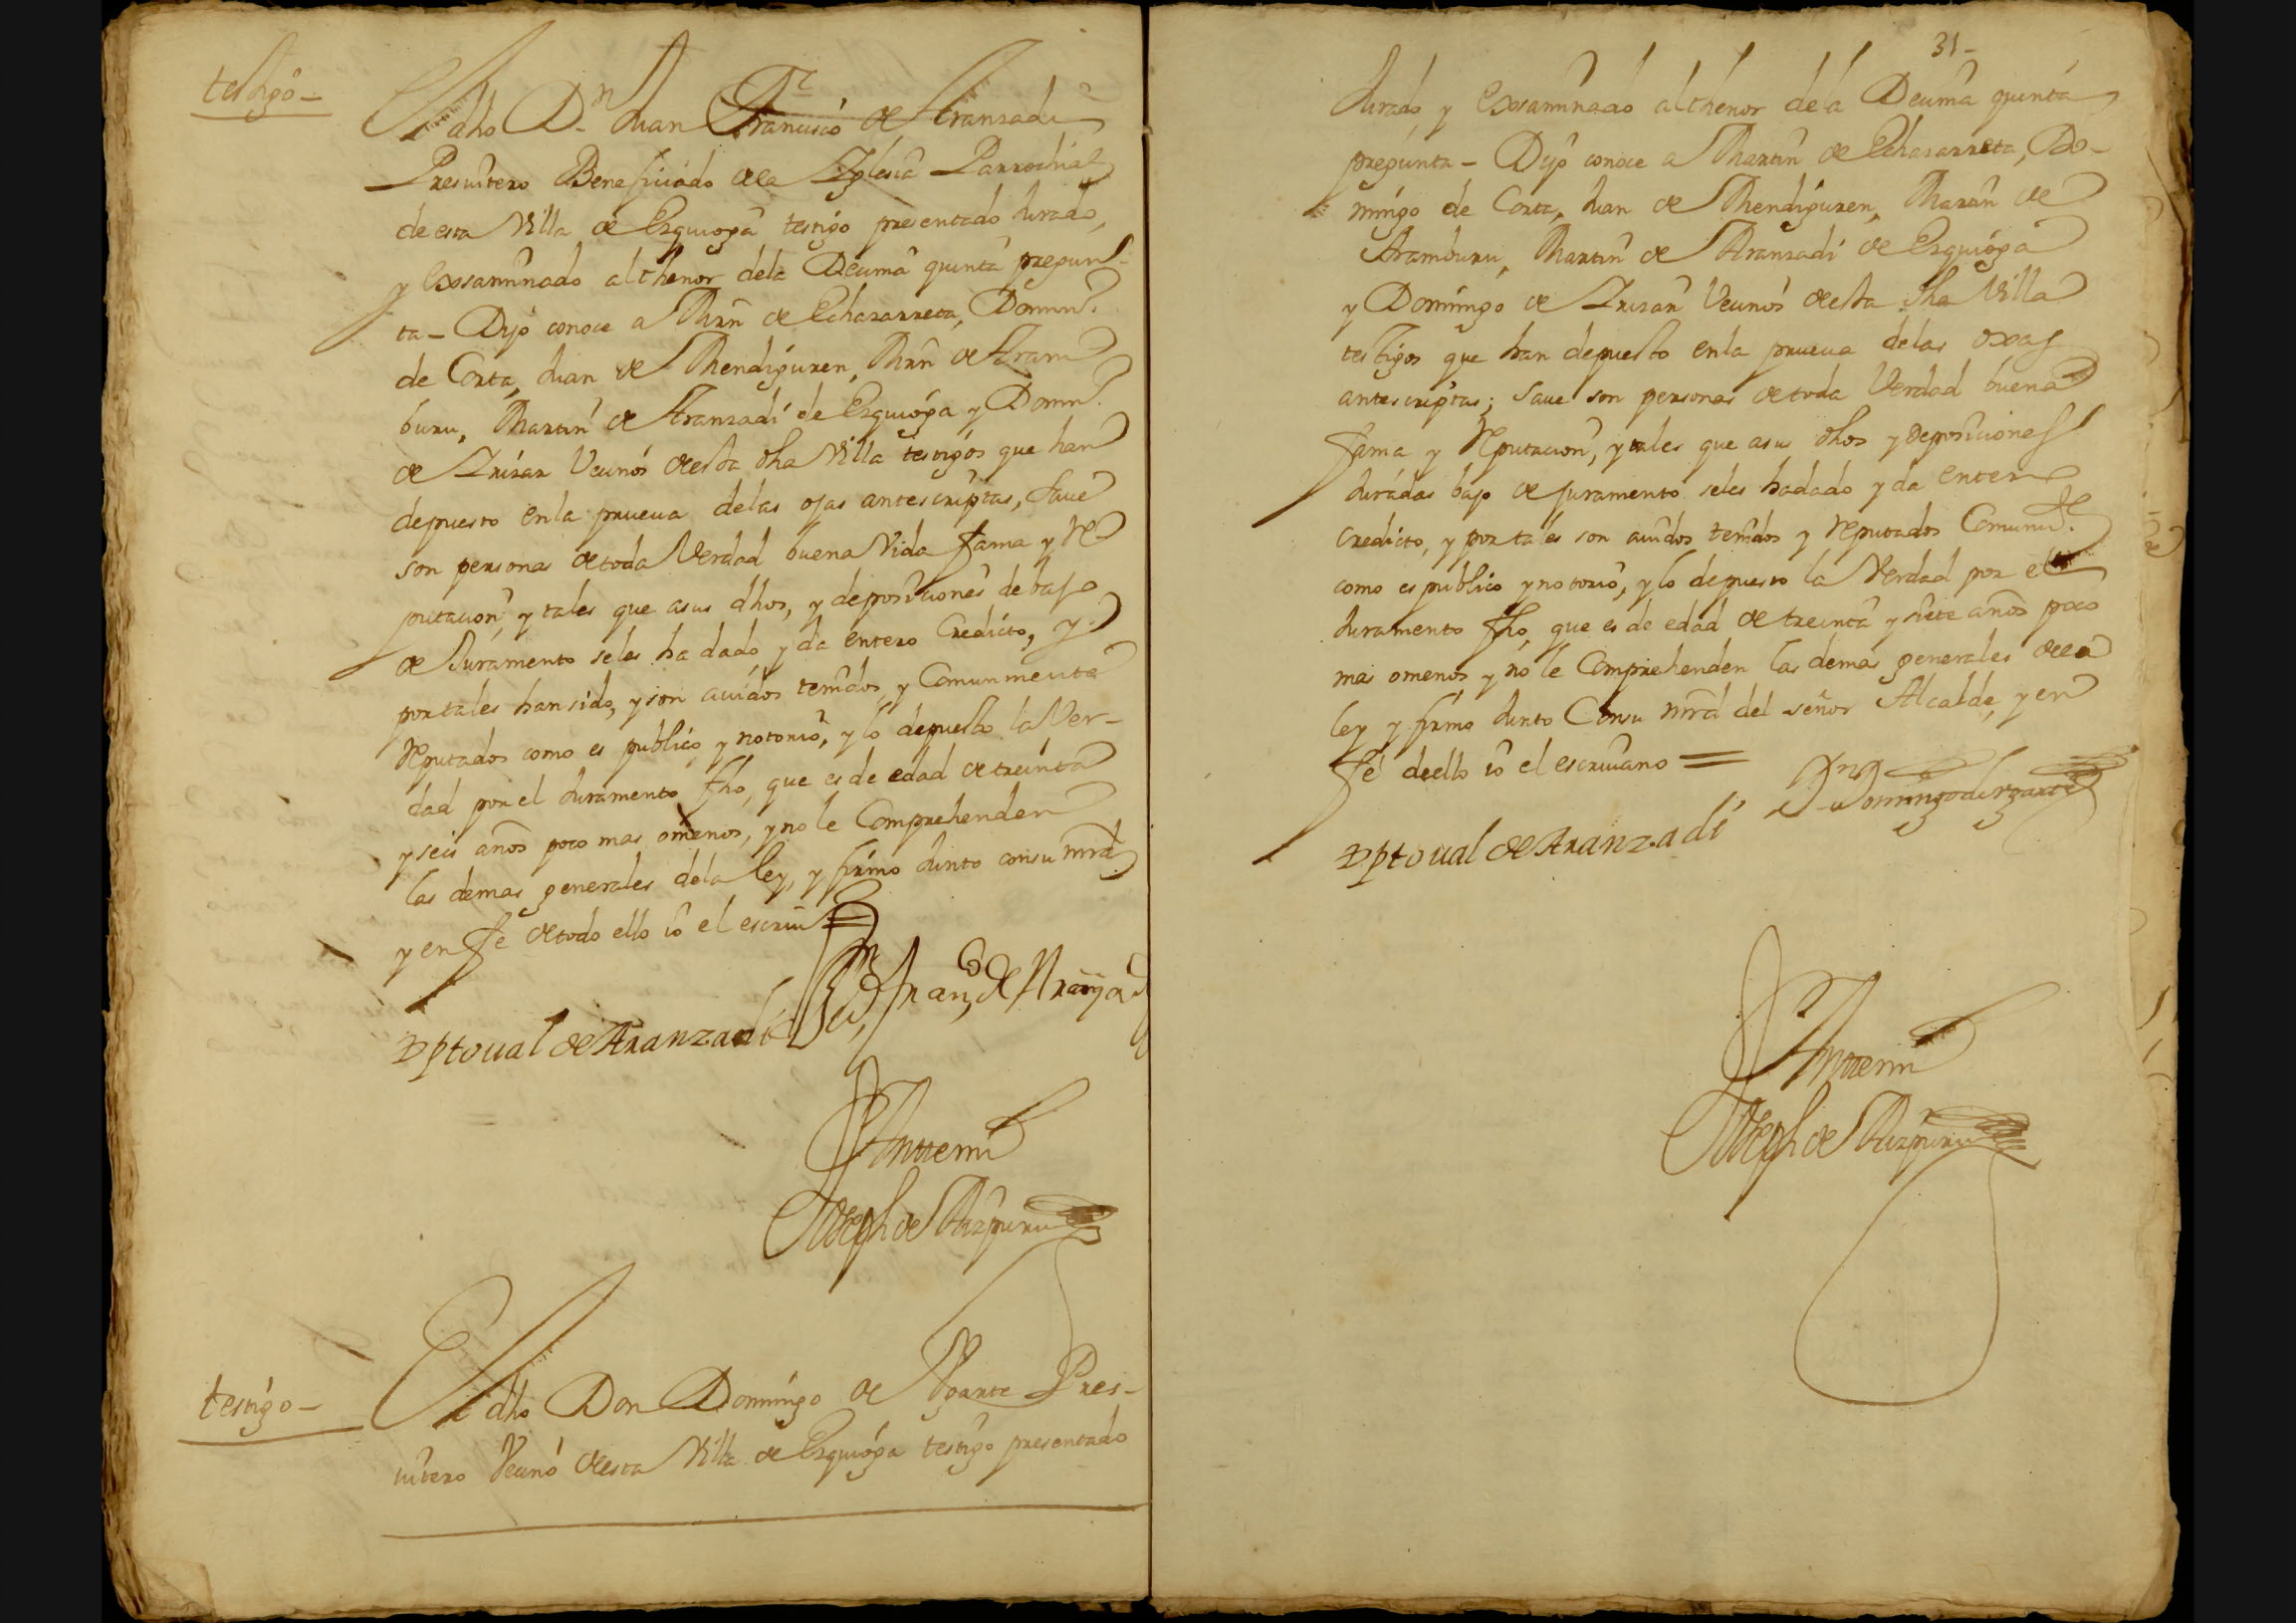 testigo –
El dho Dn. Juan Franco. Francisco de Aranzadi
Presvitero Beneficiado de la Yglesia Parrochial
de esta Villa de Ezquioga testigo presentado Jurado,
y Exsaminado althenor dela Decima quinta pregun-
ta – Dijo conoce a Mrn de Echazarreta, Domin.
de Corta, Juan de Mendiguren, Mrn de Aram
buru, Martin de Aranzadi de Ezquioga y Domin.
de Irizar Vecinos desta dha Villa testigos que han
depuesto en la prueua delas ojas antescriptas, Saue
son personas de toda Verdad buena Vida fama y Re
putacion, y tales que asus dhos, y deposiciones debajo
de Juramento seles ha dado, y da entero Credicto, y
portales han sido, y son auidos tenidos, y Comunmente
Reputados como es publico, y notorio, y lo depuesto la Ver-
dad por el Juramento fho, que es de edad de treinta
y seis años poco mas omenos, y no le Comprehenden
las demas generales dela ley, y firmo Junto consu mrd
y en fe de todo ello io el escriu
Xptoual de Aranzadi
Anttemi
Joseph de Aizpuru
testigo –
El dho Don Domingo de Vgarte Pres-
uitero Vecino desta Villa de Ezquioga testigo presentado
31-
Jurado, y Exsaminado althenor dela Decima quinta
pregunta – Dijo conoce a Martin de Echazarreta, Do-
mingo de Corta, Juan de Mendiguren, Martin de
Aramburu, Martin de Aranzadi de Ezquioga
y Domingo de Irizar Vecinos desta dha Villa
testigos que han depuesto en la prueua delas oxas
antescriptas; Saue son personas de toda Verdad buena
fama y Reputacion, y tales que asus dhos y deposiciones
Juradas bajo de juramento seles hadado y da entero
credicto, y por tales son auidos tenidos y Reputados Comunmte.
como es publico y notorio, y lo depuesto la Verdad por el
Juramento fho, que es de edad de treinta y siete años poco
mas omenos, y no le Comprehenden las demas generales de la
ley y firmo Junto Consu mrd del señor Alcalde, y en
fe de ello io el escriuano =
Dn Domingo de Vgarte
Xptoual de Aranzadi
Anttemi
Joseph de Aizpuru